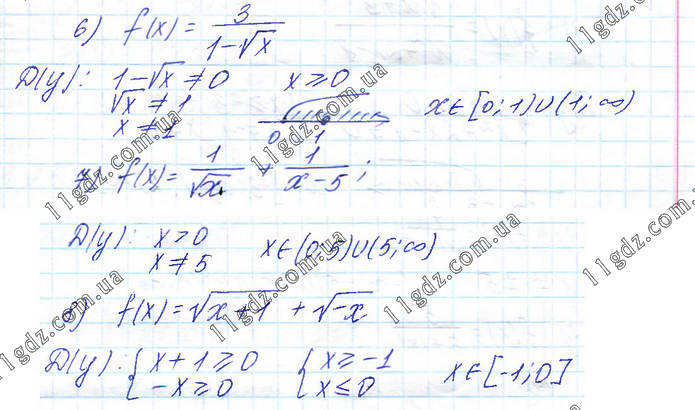 6) f(x) = 3/(1-√x)
D(y): 1-√x ≠ 0 x ≥ 0
√x ≠ 1
x ≠ 1 0 1 x∈[0;1)∪(1;∞)
7) f(x) = 1/√x + 1/(x-5);
D(y): x > 0
x ≠ 5 x∈(0;5)∪(5;∞)
8) f(x) = √(x+1) + √(-x)
D(y): { x+1 ≥ 0 { x ≥ -1
{ -x ≥ 0 { x ≤ 0 x∈[-1;0]
11gdz.com.ua
11gdz.com.ua
11gdz.com.ua
11gdz.com.ua
11gdz.com.ua
11gdz.com.ua